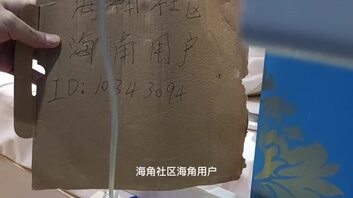 海角社区
海角用户
ID: 10343094
海角社区海角用户